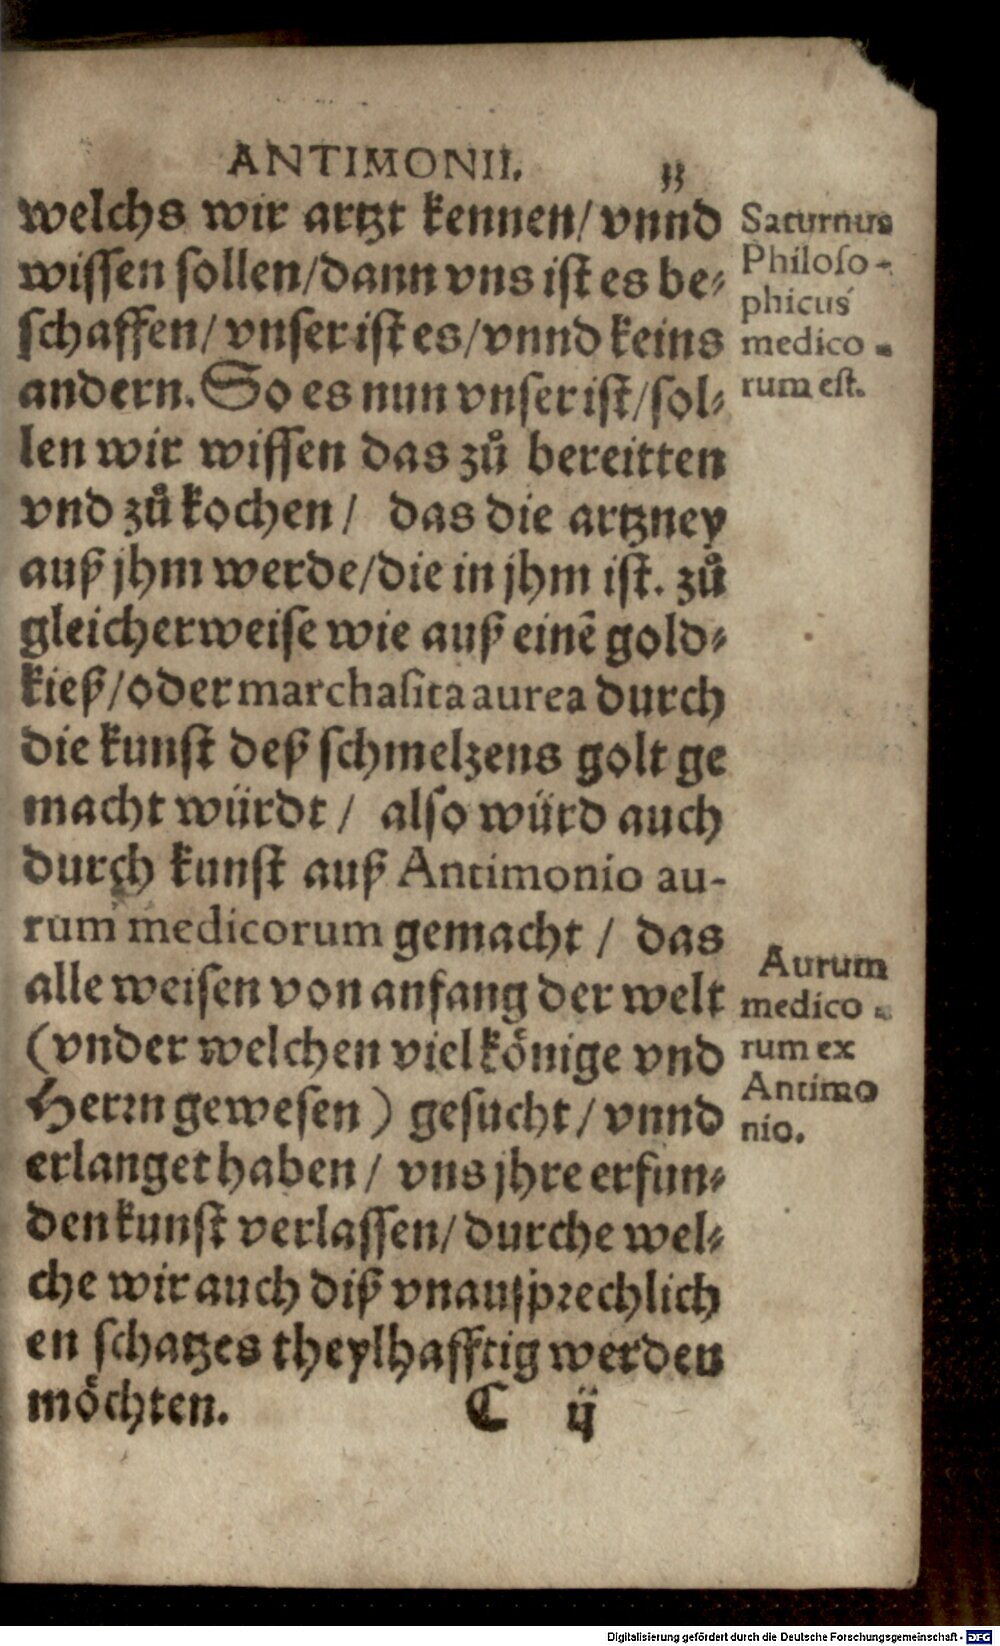 ANTIMONII.
welchs wir artzt kennen/ vnnd
wissen sollen/dann vns ist es be⸗
schaffen/ vnser ist es/vnnd keins
andern. So es nun vnser ist/sol⸗
len wir wissen das zů bereitten
vnd zů kochen/ das die artzney
auß jhm werde/die in jhm ist. zů
gleicherweise wie auß einē gold⸗
kieß/oder marchasita aurea durch
die kunst deß schmelzens golt ge
macht würdt/ also würd auch
durch kunst auß Antimonio au-
rum medicorum gemacht/ das
alle weisen von anfang der welt
(vnder welchen viel könige vnd
Herrn gewesen) gesucht/ vnnd
erlanget haben/ vns jhre erfun⸗
den kunst verlassen/ durche wel⸗
che wir auch diß vnaußprechlich
en schatzes theylhafftig werden
möchten.
C ij
Saturnus
Philoso-
phicus
medico-
rum est.
Aurum
medico-
rum ex
Antimo
nio.
Digitalisierung gefördert durch die Deutsche Forschungsgemeinschaft - DFG